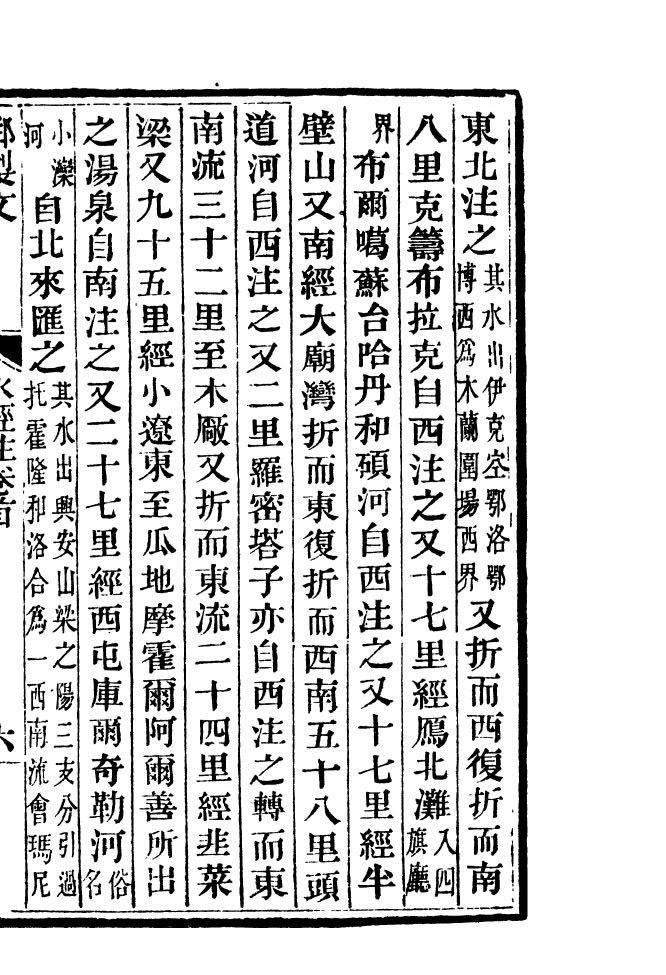 東北注之其水出伊克空鄂洛鄂博西爲木蘭圍場西界又折而西復折而南
八里克籌布拉克自西注之又十七里經鴈北灘入四旗廳
界布爾噶蘇台哈丹和碩河自西注之又十七里經半
壁山又南經大廟灣折而東復折而西南五十八里頭
道河自西注之又二里羅密塔子亦自西注之轉而東
南流三十二里至木廠又折而東流二十四里經韭菜
梁又九十五里經小遼東至瓜地摩霍爾阿爾善所出
之湯泉自南注之又二十七里經西屯庫爾奇勒河俗名
小灤河自北來匯之其水出興安山梁之陽三支分引過托霍隆和洛合爲一西南流會瑪尼
製文 水經注卷首 六